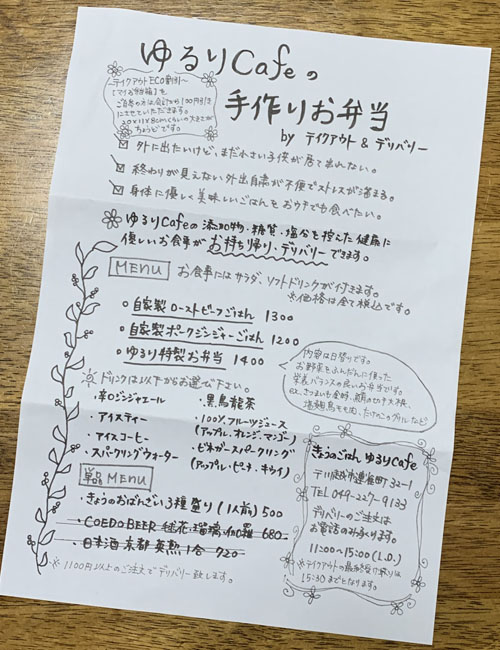 ゆるりCafeの
手作りお弁当
by テイクアウト & デリバリー
〜テイクアウトECO割引〜
【マイお弁当箱】を
ご持参の方は会計から100円引き
にさせていただきます。
20×11×8cmくらいの大きさが
ちょうどです。
☑ 外に出たいけど、まだ小さい子供が居て出れない。
☑ 終わりが見えない外出自粛が不便でストレスが溜まる。
☑ 身体に優しく美味しいごはんをおウチでも食べたい。
ゆるりCafeの添加物・糖質・塩分を控えた健康に
優しいお食事がお持ち帰り・デリバリーできます。
MENU お食事にはサラダ、ソフトドリンクが付きます。
※価格は全て税込です。
・自家製ローストビーフごはん 1300
・自家製ポークジンジャーごはん 1200
・ゆるり特製お弁当 1400
内容は日替りです。
お野菜をふんだんに使った
栄養バランスの良いお弁当です。
塩麹鳥もも肉、たけのこのグリルなど
ドリンクは以下からお選び下さい。
・辛口ジンジャエール
・アイスティー
・アイスコーヒー
・スパークリングウォーター
・黒烏龍茶
・100%フルーツジュース
(アップル、オレンジ、マンゴー)
・ビネガースパークリング
(アップル・ピーチ・キウイ)
単品MENU
・きょうのおばんざい3種盛り(1人前) 500
・COEDO BEER 毬花・瑠璃・伽羅 680
・日本酒 京都 英勲 1合 720
※1100円以上のご注文でデリバリー致します。
きょうのごはん ゆるりCafe
〒川越市連雀町32-1
TEL 049-227-9133
デリバリーのご注文は
お電話のみ承ります。
11:00〜15:00(L.O.)
※テイクアウトの最終受け取りは
15:30までとなります。